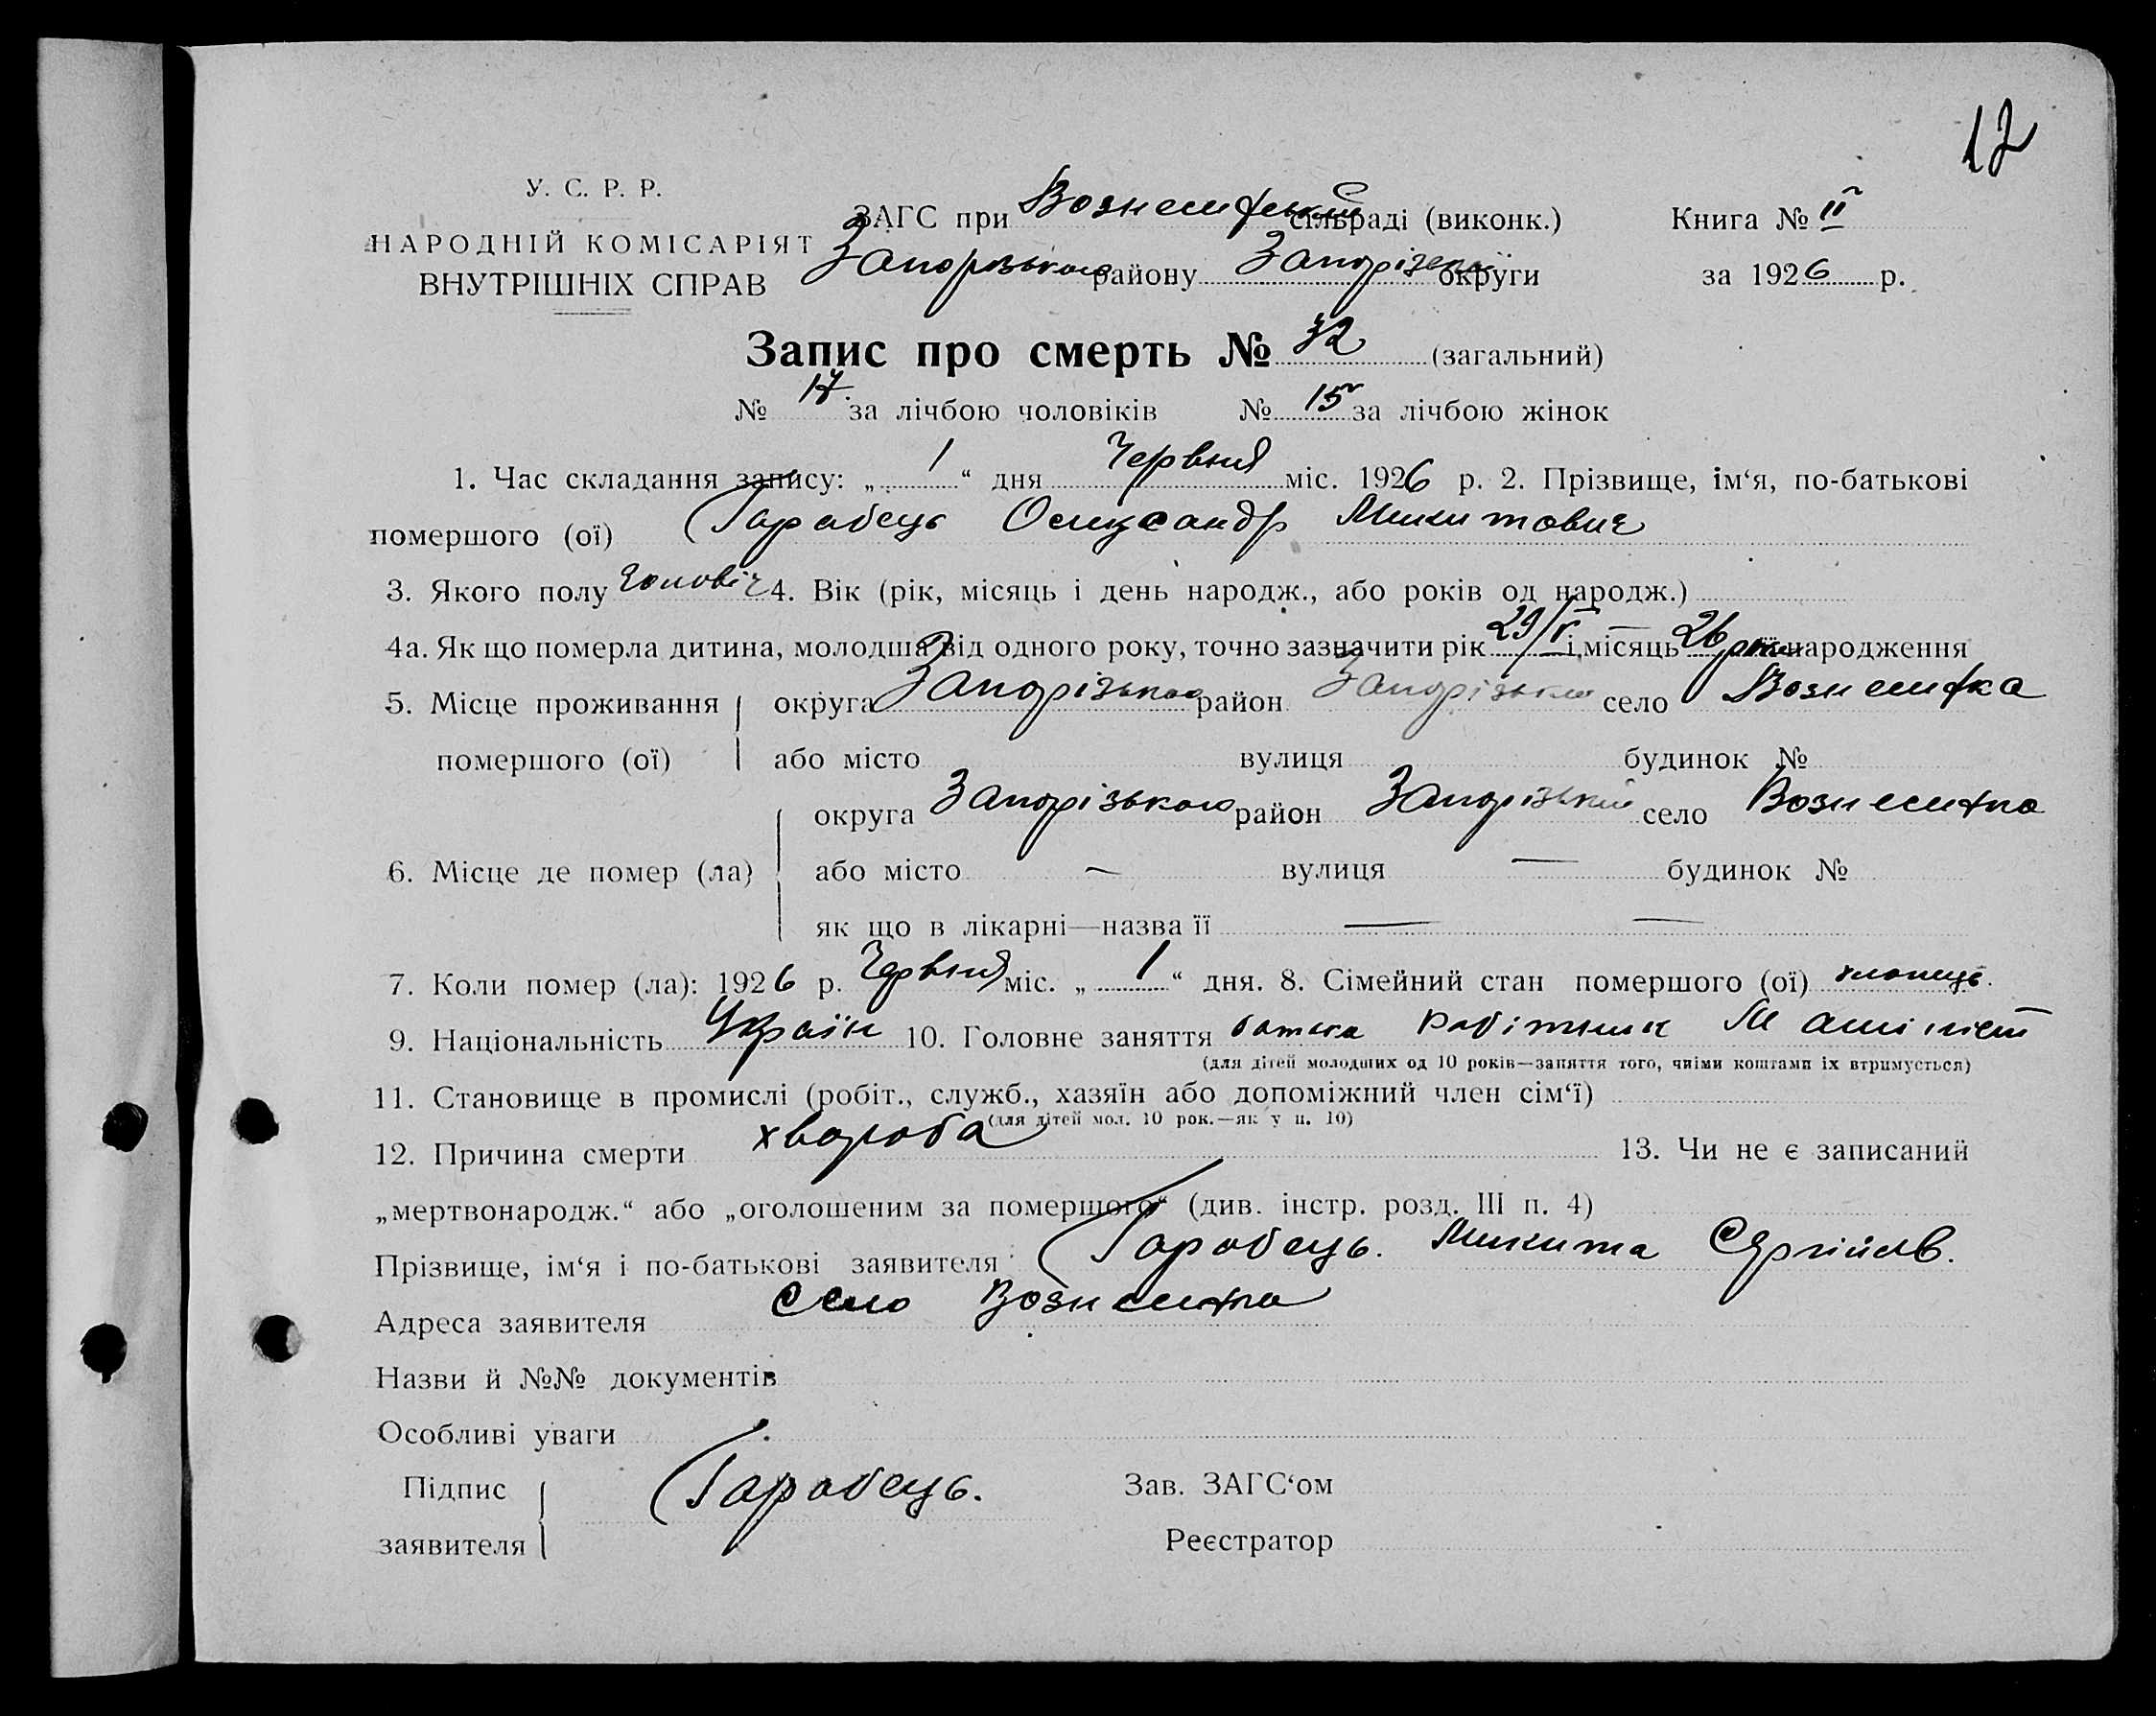 12
У. С. Р. Р.
НАРОДНІЙ КОМІСАРІЯТ
ВНУТРІШНІХ СПРАВ
ЗАГС при Вознесенській сільраді (виконк.) Книга № II
Запорізького району Запорізької округи за 1926 р.
Запис про смерть № 32 (загальний)
№ 17 за лічбою чоловіків № 15 за лічбою жінок
1. Час складання запису: „ 1 “ дня Червня міс. 1926 р. 2. Прізвище, ім‘я, по-батькові
помершого (ої) Горобець Олександр Микитович
3. Якого полу чоловіч 4. Вік (рік, місяць і день народж., або років од народж.)
4а. Як що померла дитина, молодша від одного року, точно зазначити рік 29/V і місяць 26 народження
5. Місце проживання округа Запорізька район Запорізький село Вознесенка
помершого (ої) або місто вулиця будинок №
округа Запорізького район Запорізький село Вознесенка
6. Місце де помер (ла) або місто — вулиця — будинок №
як що в лікарні—назва її — —
7. Коли помер (ла): 1926 р. Червня міс. „ 1 “ дня. 8. Сімейний стан помершого (ої) хлопець.
9. Національність Україн 10. Головне заняття батька робітник Машиніст
(для дітей молодших од 10 років—заняття того, чиїми коштами їх втримується)
11. Становище в промислі (робіт., служб., хазяїн або допоміжний член сім‘ї)
(для дітей мол. 10 рок.—як у п. 10)
12. Причина смерти хвороба 13. Чи не є записаний
„мертвонародж.“ або „оголошеним за помершого“ (див. інстр. розд. III п. 4)
Прізвище, ім‘я і по-батькові заявителя Горобець. Микита Сергійов.
Адреса заявителя село Вознесенка
Назви й №№ документів
Особливі уваги
Підпис заявителя Горобець. Зав. ЗАГС‘ом
Реєстратор